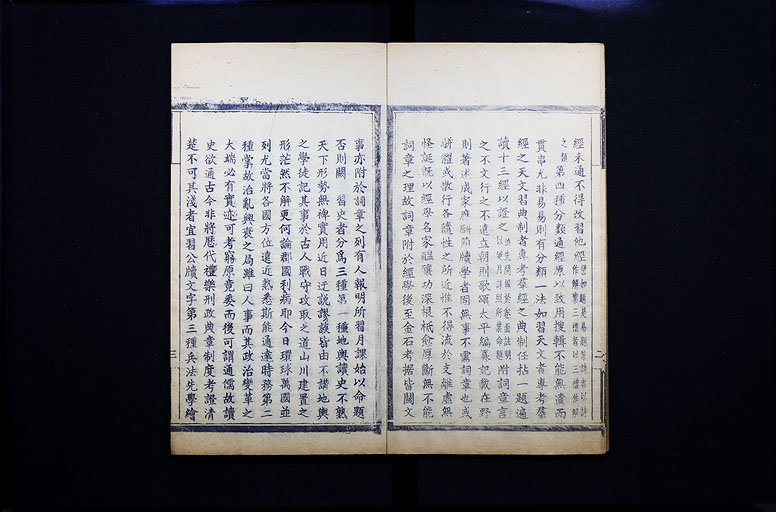 經未通不得改習他經
之類第四種分類通經原以致用搜輯不能無遺而
貫串尤非易易則有分類一法如習天文者專考羣
經之天文習典制者專考羣經之典制任拈一題遍
讀十三經以證之附詞章言
之不文行之不遠立朝則歌頌太平編纂記載在野
則著述成家麻酬箚牘學者固無事不需詞章也或
駢體或散行各隨性之所近惟不得流於支離虛無
怪誕既以經學名家醞釀功深根柢愈厚斷無不能
詞章之理故詞章附於經學後至金石考據皆關文
事亦附於詞章之列有人報明所習月課始以命題
否則闕 習史者分爲三種第一種地輿讀史不熟
天下形勢無裨實用近日迂説謬談皆由不講地輿
之學徒記其事於古人戰守攻取之道山川建置之
形茫然不解更何論郡國利病耶今日環球萬國並
列尤當將各國方位遠近熟悉斯能通達時務第二
種掌故治亂興衰之局雖曰人事而其政治變革之
大端必有實迹可考窮原竟委而後可謂通儒故讀
史欲通古今非將歷代禮樂刑政典章制度考證清
楚不可其淺者宜習公牘文字第三種兵法先學繪
二
三